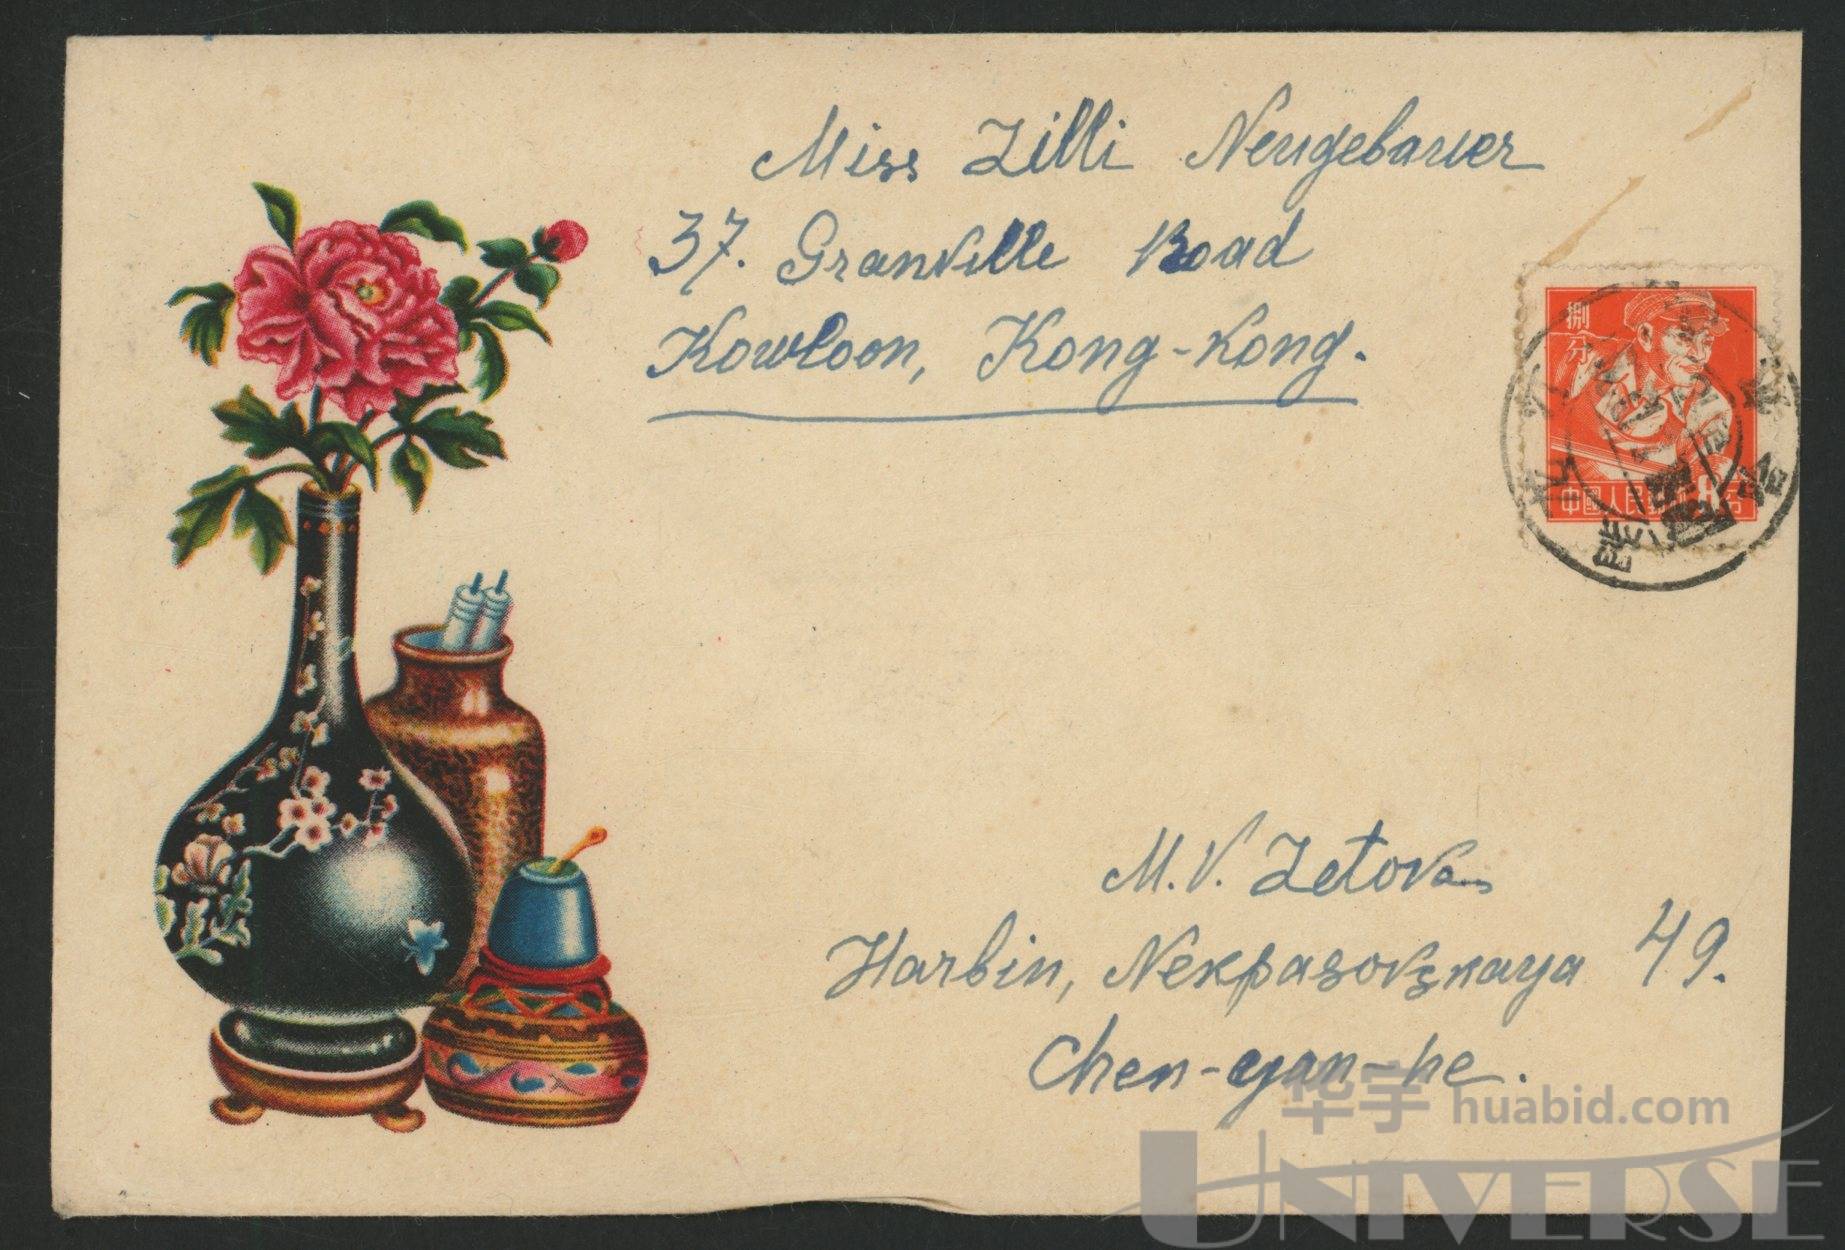 Miss Zilli Neugebauer
37. Granville Road
Kowloon, Kong-Kong.
捌分
中國人民邮政8分
M. V. Zetova
Harbin, Nekpasovskaya 49.
Chen-yan-he.
华宇 huabid.com
UNIVERSE